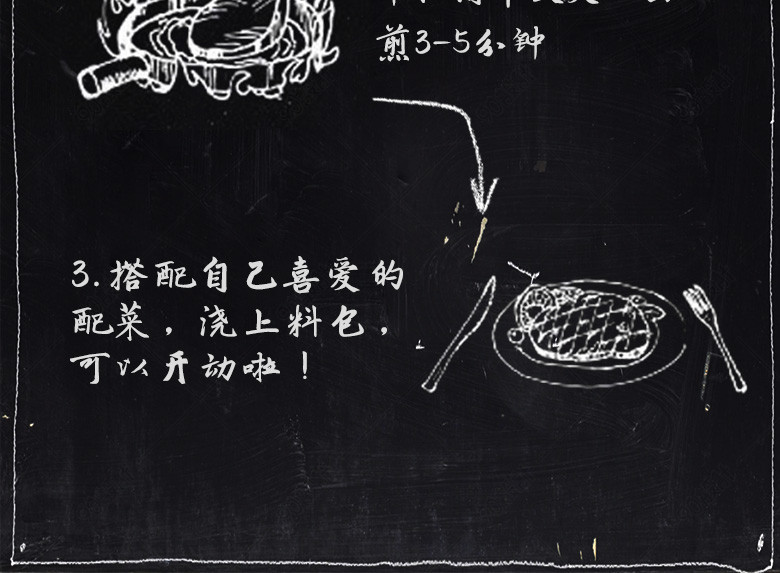 煎3-5分钟
3.搭配自己喜爱的
配菜，浇上料包，
可以开动啦！